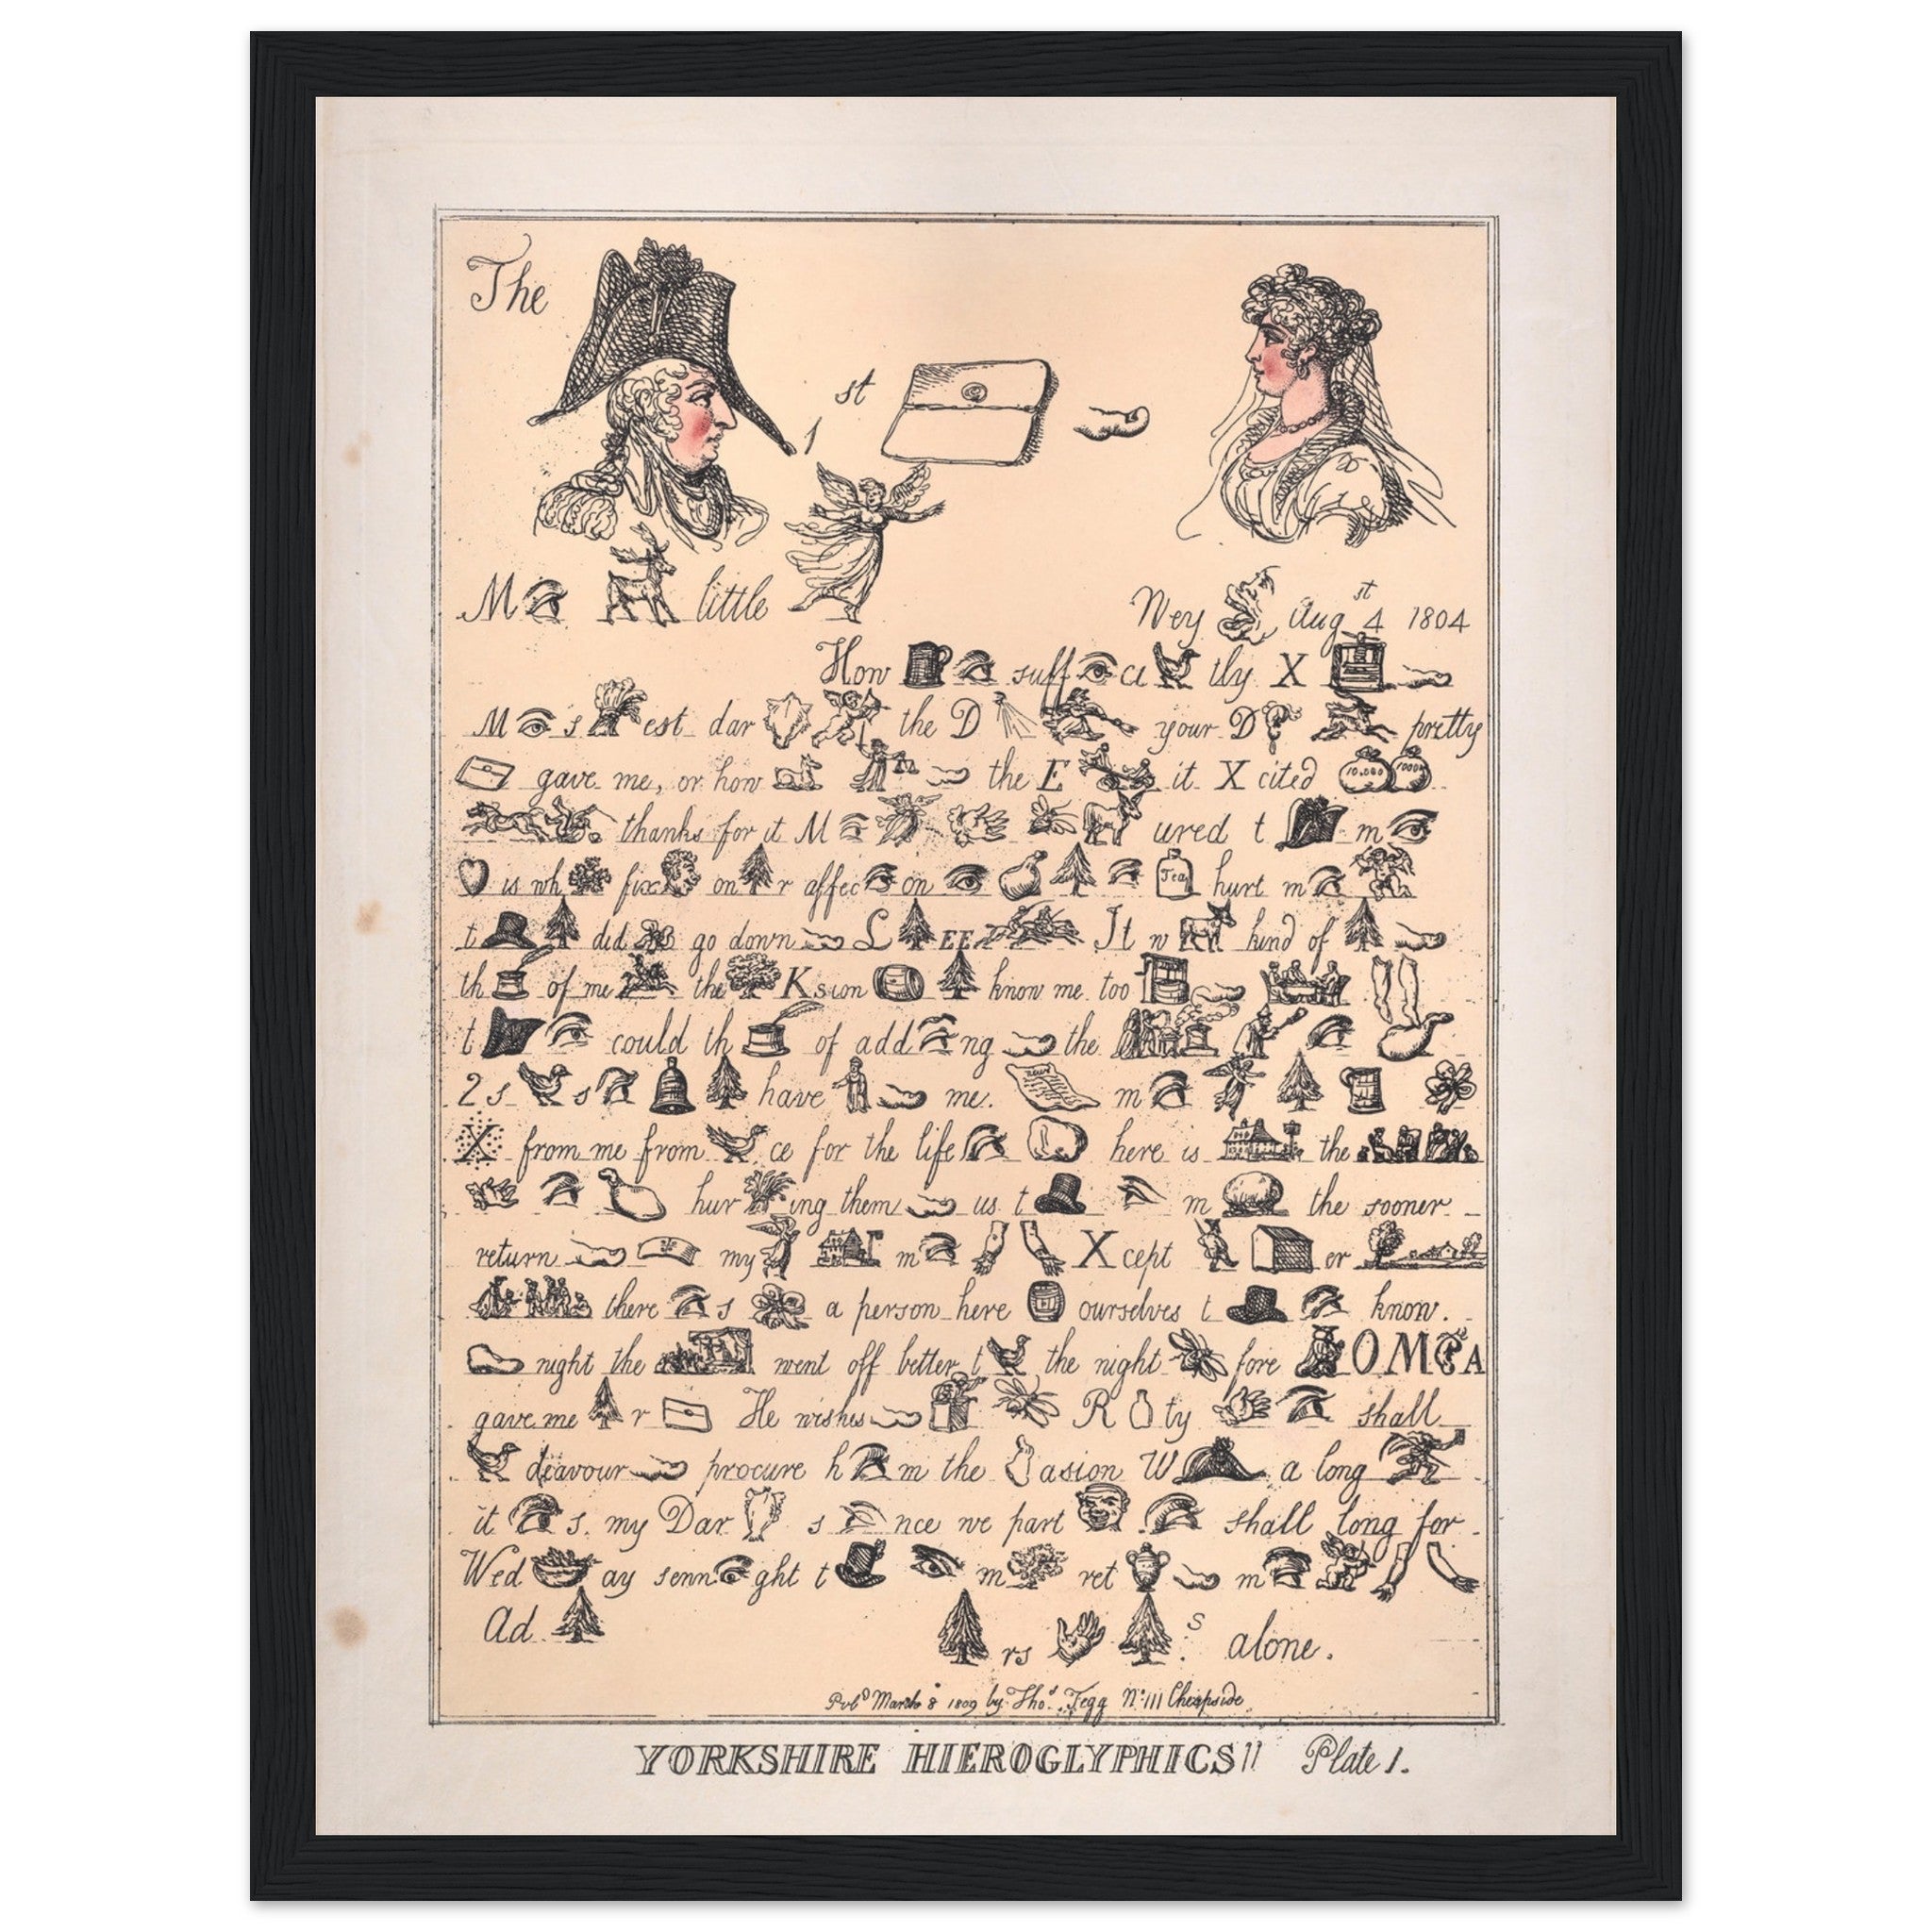 The
1 st
M little
Wey Aug st 4 1804
How suff ci tly X
M s est dar the D your D pretty
gave me, or how the E it X cited 10,000 1000
thanks for it M ured t m
is wh fix on r affec on Tea hurt m
t did go down L EE It w kind of
th of me the K sion know me too
t could th of add ng the
2 s s have me. m
X from me from ce for the life here is the
hur ing them us t m the sooner
return my m X cept or
there s a person here ourselves t know.
night the went off better t the night fore O M A
gave me r He wishes R ty shall
deavour procure h m the asion W a long
it s. my Dar s nce we part shall long for
Wed ay senn ght t m ret m
Ad
rs s alone.
Pubd March 8 1809 by Thos. Tegg No. 111 Cheapside
YORKSHIRE HIEROGLYPHICS!! Plate 1.